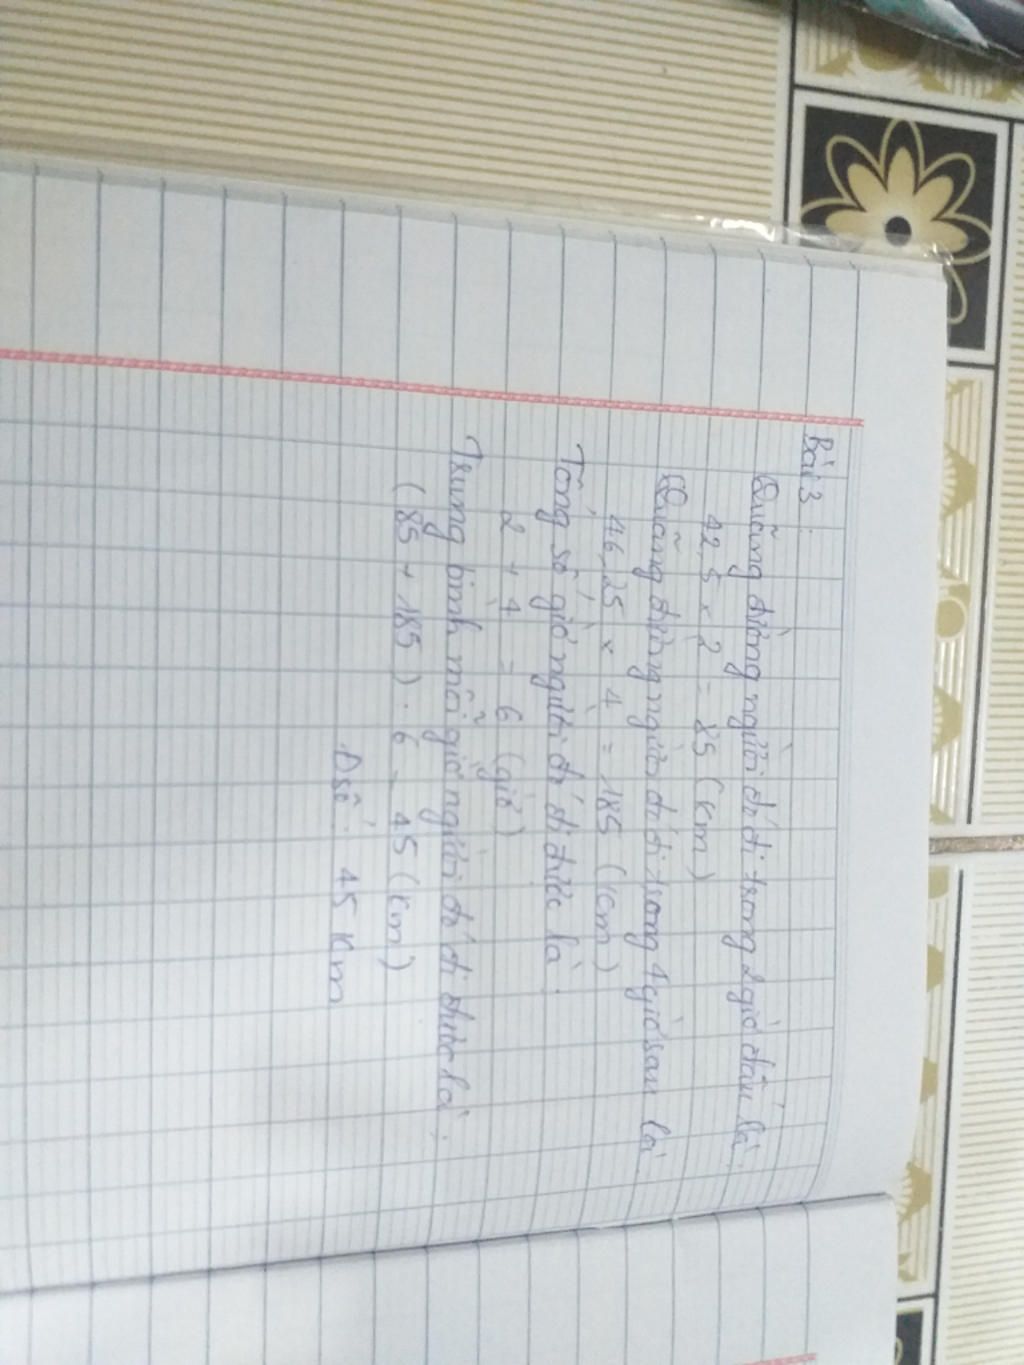 Bài 3:
Quãng đường người đó đi trong 2 giờ đầu là:
42,5 x 2 = 85 (km)
Quãng đường người đó đi trong 4 giờ sau là
46,25 x 4 = 185 (km)
Tổng số giờ người đó đi được là:
2 + 4 = 6 (giờ)
Trung bình mỗi giờ người đó đi được là:
(85 + 185) : 6 = 45 (km)
Đ số: 45 km